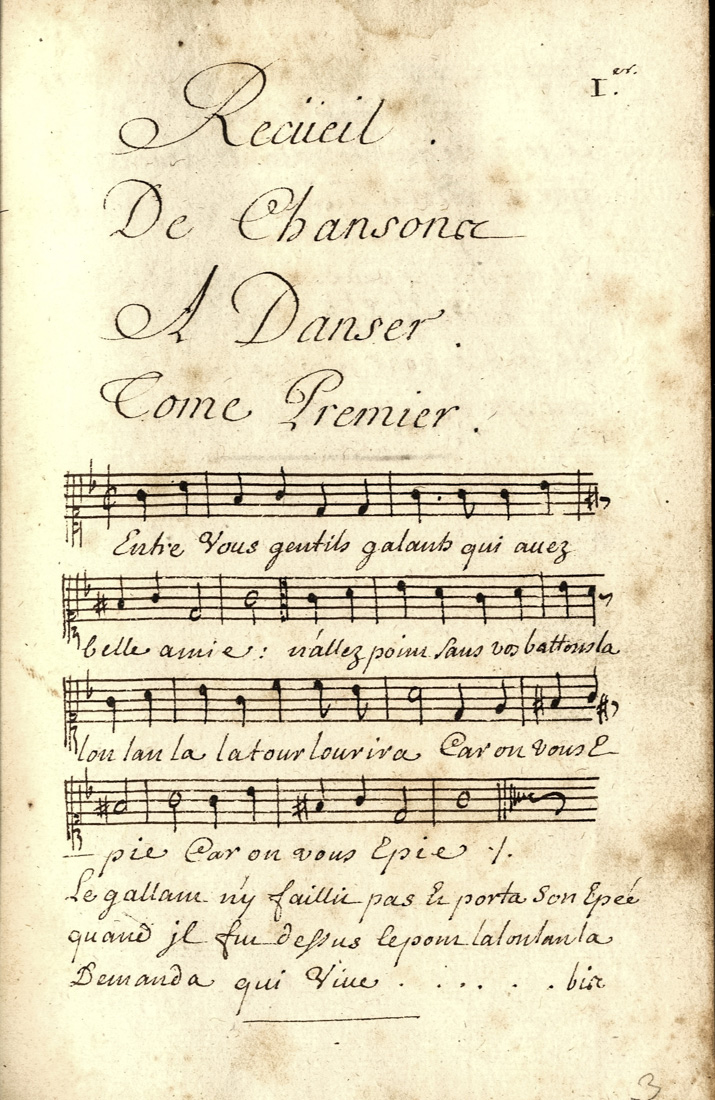 1.er
Recüeil .
De Chansons
A Danser .
Tome Premier .
Entre Vous gentils galants qui auez
belle amie : n'allez point sans vos battons la
lon lan la la tour lourira Car on vous E
- pie Car on vous Epie ·/.
Le gallant n'y faillit pas Et porta son Epeé
quand jl fut dessus le pont la lon lan la
Demanda qui Viue . . . . . . bis
3